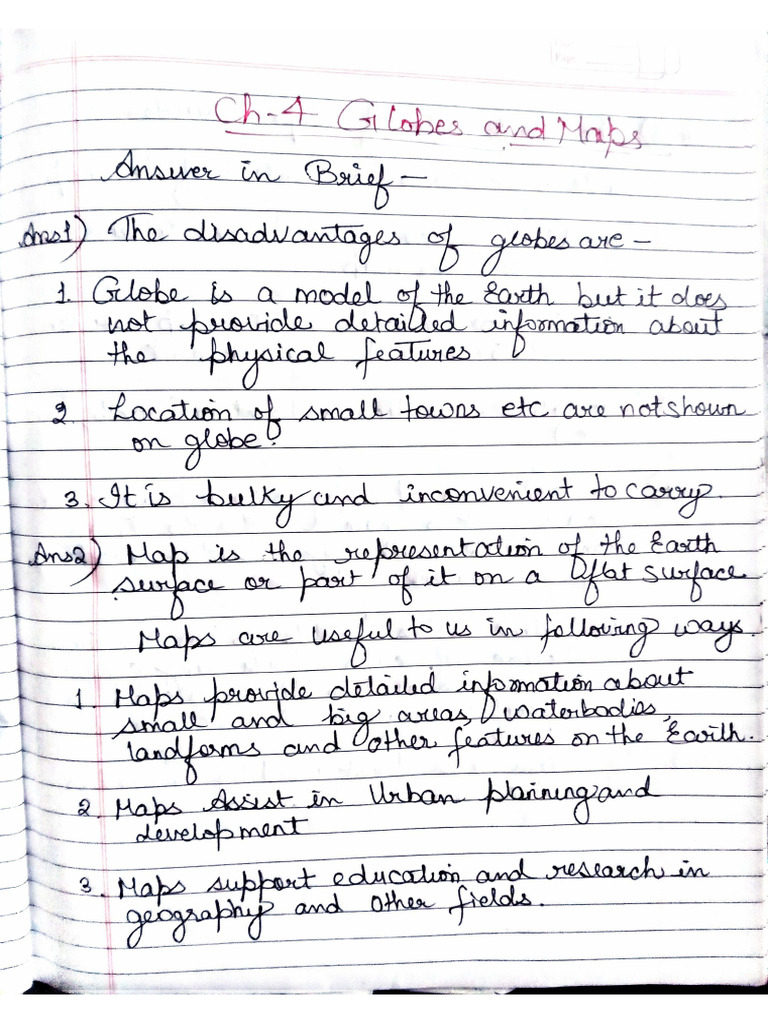 Ch-4 Globes and Maps
Answer in Brief -
Ans1) The disadvantages of globes are -
1. Globe is a model of the Earth but it does
not provide detailed information about
the physical features
2. Location of small towns etc are not shown
on globe.
3. It is bulky and inconvenient to carry.
Ans2) Map is the representation of the Earth
surface or part of it on a flat surface
Maps are useful to us in following ways.
1. Maps provide detailed information about
small and big areas, waterbodies,
landforms and other features on the Earth.
2. Maps Assist in Urban planning and
development
3. Maps support education and research in
geography and other fields.